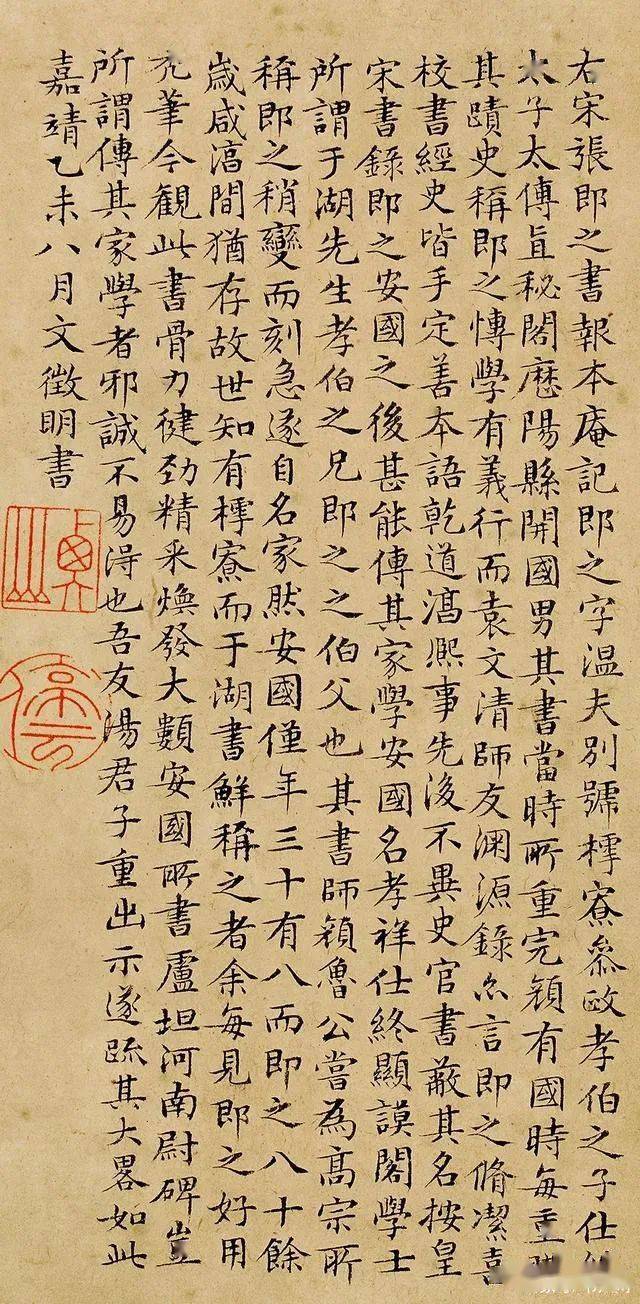 右宋張即之書報本庵記即之字溫夫別號樗寮參政孝伯之子仕
太子太傅直秘閣歷陽縣開國男其書當時所重完顏有國時每重
其蹟史稱即之慱學有義行而袁文清師友淵源錄亦言即之脩潔喜
校書經史皆手定善本語乾道淳熙事先後不異史官書蔽其名按皇
宋書錄即之安國之後甚能傳其家學安國名孝祥仕終顯謨閣學士
所謂于湖先生孝伯之兄即之之伯父也其書師顏魯公嘗為高宗所
稱即之稍變而刻急遂自名家然安國僅年三十有八而即之八十餘
歲咸淳間猶存故世知有樗寮而于湖書鮮稱之者余每見即之好用
禿筆今觀此書骨力健勁精采煥發大類安國所書盧坦河南尉碑豈
所謂傳其家學者邪誠不易得也吾友湯君子重出示遂疏其大畧如此
嘉靖乙未八月文徵明書
停雲